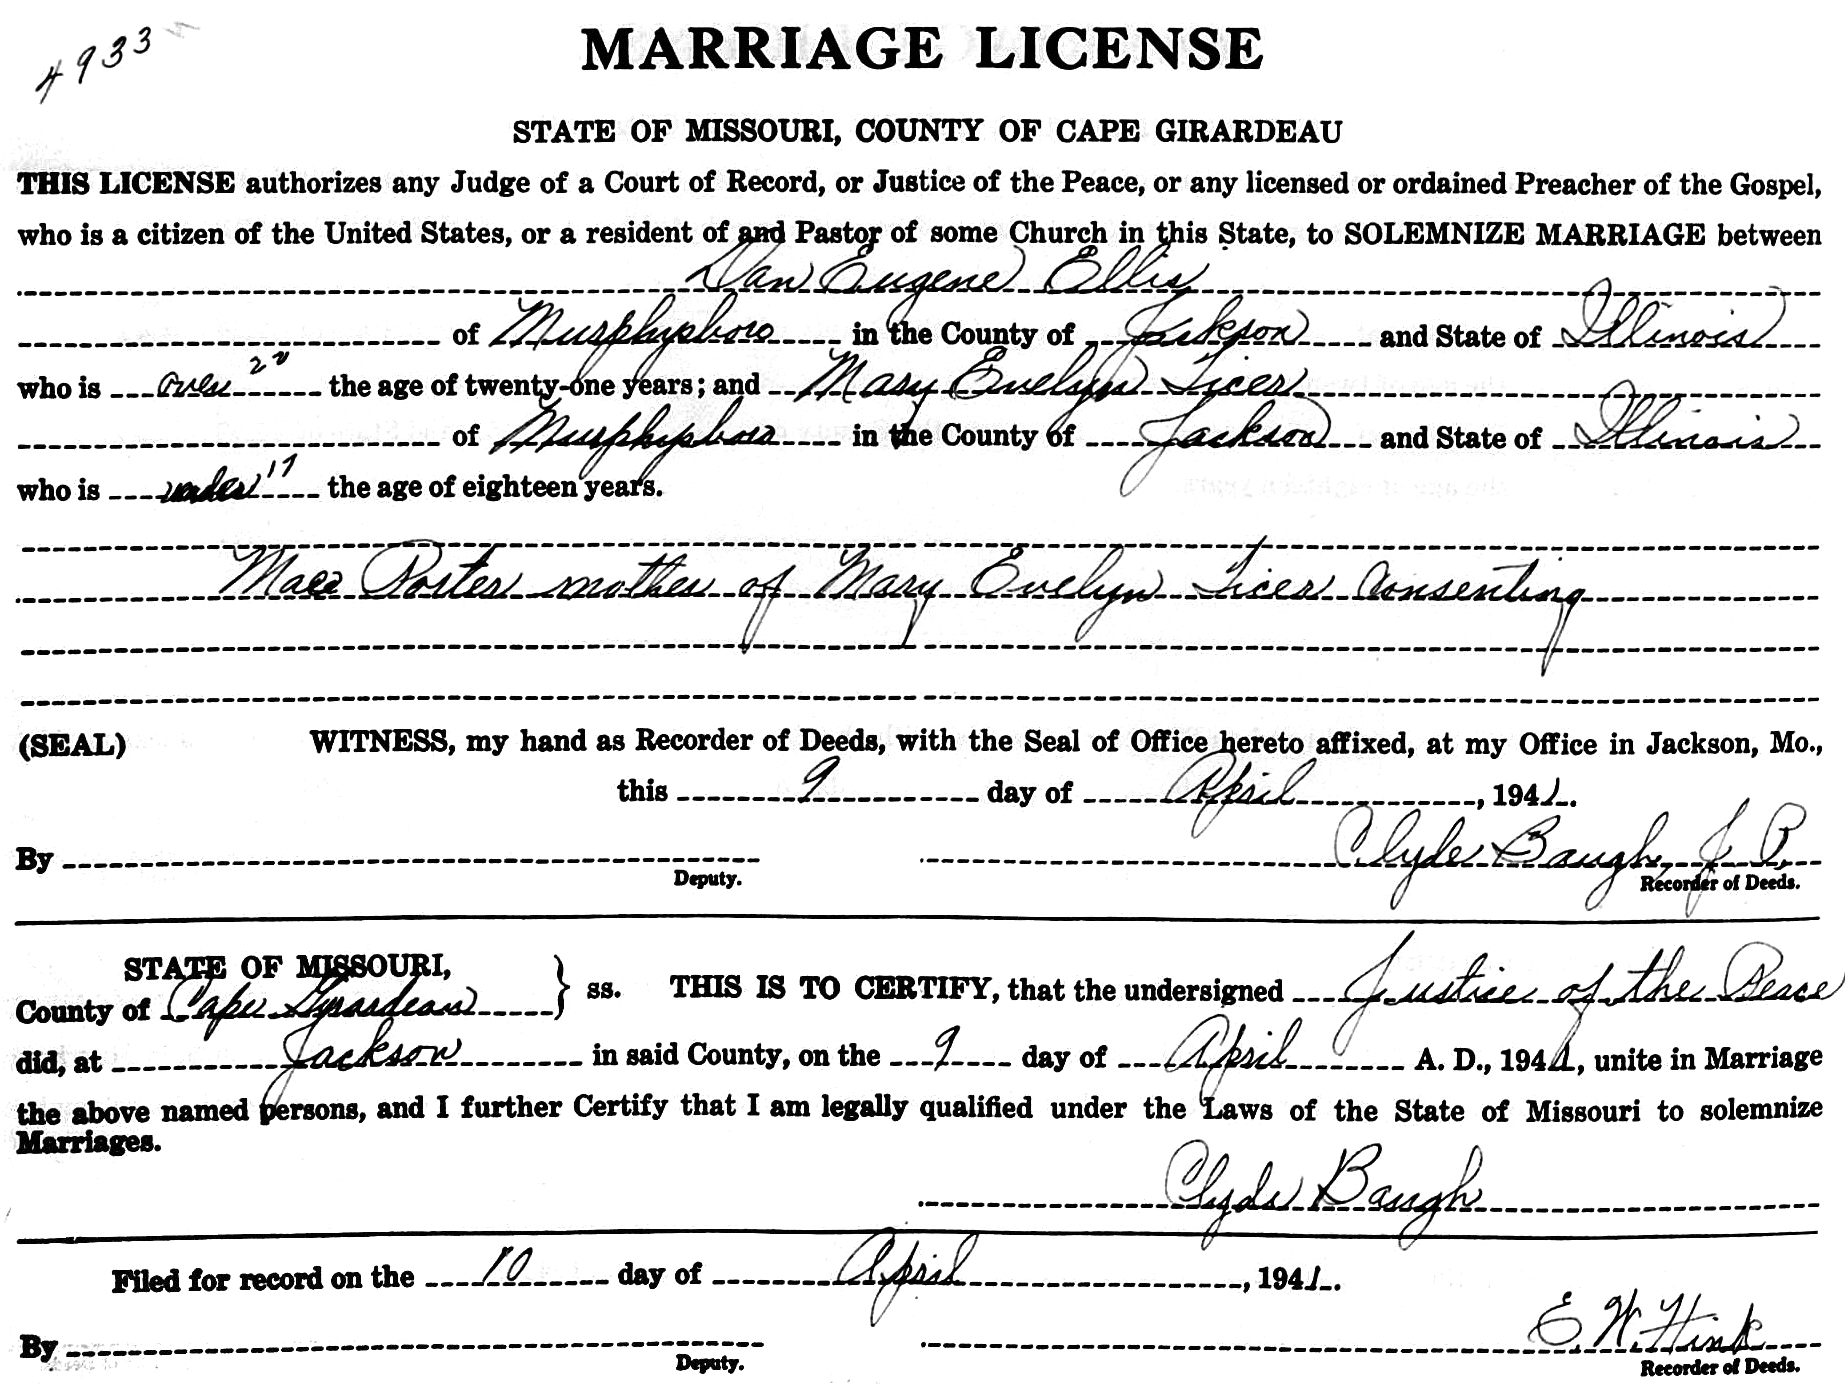 4933
MARRIAGE LICENSE
STATE OF MISSOURI, COUNTY OF CAPE GIRARDEAU
THIS LICENSE authorizes any Judge of a Court of Record, or Justice of the Peace, or any licensed or ordained Preacher of the Gospel,
who is a citizen of the United States, or a resident of and Pastor of some Church in this State, to SOLEMNIZE MARRIAGE between
Dan Eugene Ellis
of Murphysboro in the County of Jackson and State of Illinois
who is over the age of twenty-one years; and Mary Evelyn Ticer
of Murphysboro in the County of Jackson and State of Illinois
who is under 17 the age of eighteen years.
Porter mother of Mary Evelyn Ticer Consenting
(SEAL) WITNESS, my hand as Recorder of Deeds, with the Seal of Office hereto affixed, at my Office in Jackson, Mo.,
this 9 day of April, 1941.
By Clyde Baugh, J. P.
Deputy. Recorder of Deeds.
STATE OF MISSOURI,
County of Cape Girardeau } ss. THIS IS TO CERTIFY, that the undersigned Justice of the Peace
did, at Jackson in said County, on the 9 day of April A. D., 1941, unite in Marriage
the above named persons, and I further Certify that I am legally qualified under the Laws of the State of Missouri to solemnize
Marriages.
Clyde Baugh
Filed for record on the 10 day of April, 1941.
By E. W. Hink
Deputy. Recorder of Deeds.